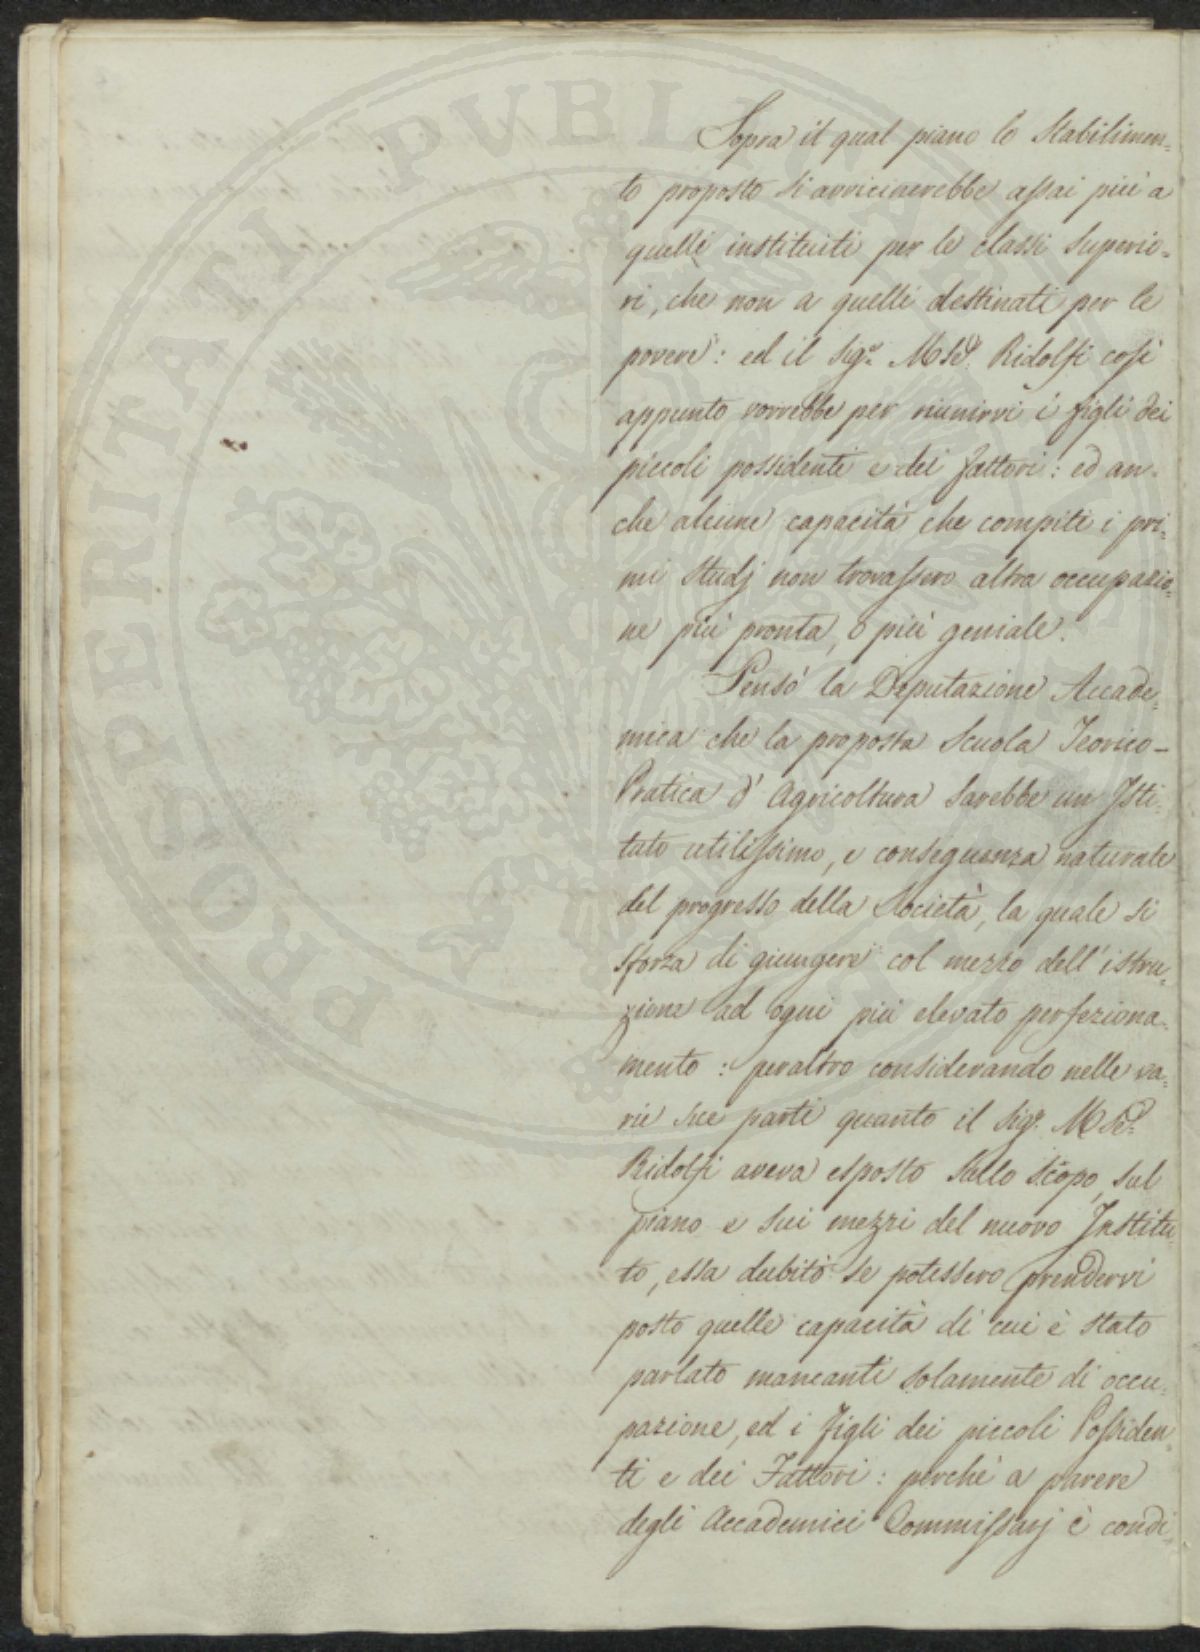 PROSPERITATI PUBLICAE
Sopra il qual piano lo Stabilimen=
to proposto si avvicinerebbe assai più a
quelli instituiti per le classi superio=
ri, che non a quelli destinati per le
povere: ed il Sigr. Mse. Ridolfi così
appunto vorrebbe per riunirvi i figli dei
piccoli possidenti e dei fattori: ed an=
che alcune capacità che compiti i pri=
mi studj non trovassero altra occupazio=
ne più pronta, o più geniale.
Pensò la Deputazione Accade=
mica che la proposta Scuola Teorico-
Pratica d' Agricoltura sarebbe un Isti=
tuto utilissimo, e conseguenza naturale
del progresso della Società, la quale si
sforza di giungere col mezzo dell' istru=
zione ad ogni più elevato perfeziona=
mento: peraltro considerando nelle va=
rie sue parti quanto il Sigr. Mse.
Ridolfi aveva esposto sullo scopo, sul
piano e sui mezzi del nuovo Institu=
to, essa dubitò se potessero prendervi
posto quelle capacità di cui è stato
parlato mancanti solamente di occu=
pazione, ed i figli dei piccoli Possiden=
ti e dei Fattori: perchè a parere
degli Accademici Commissarj è condi=